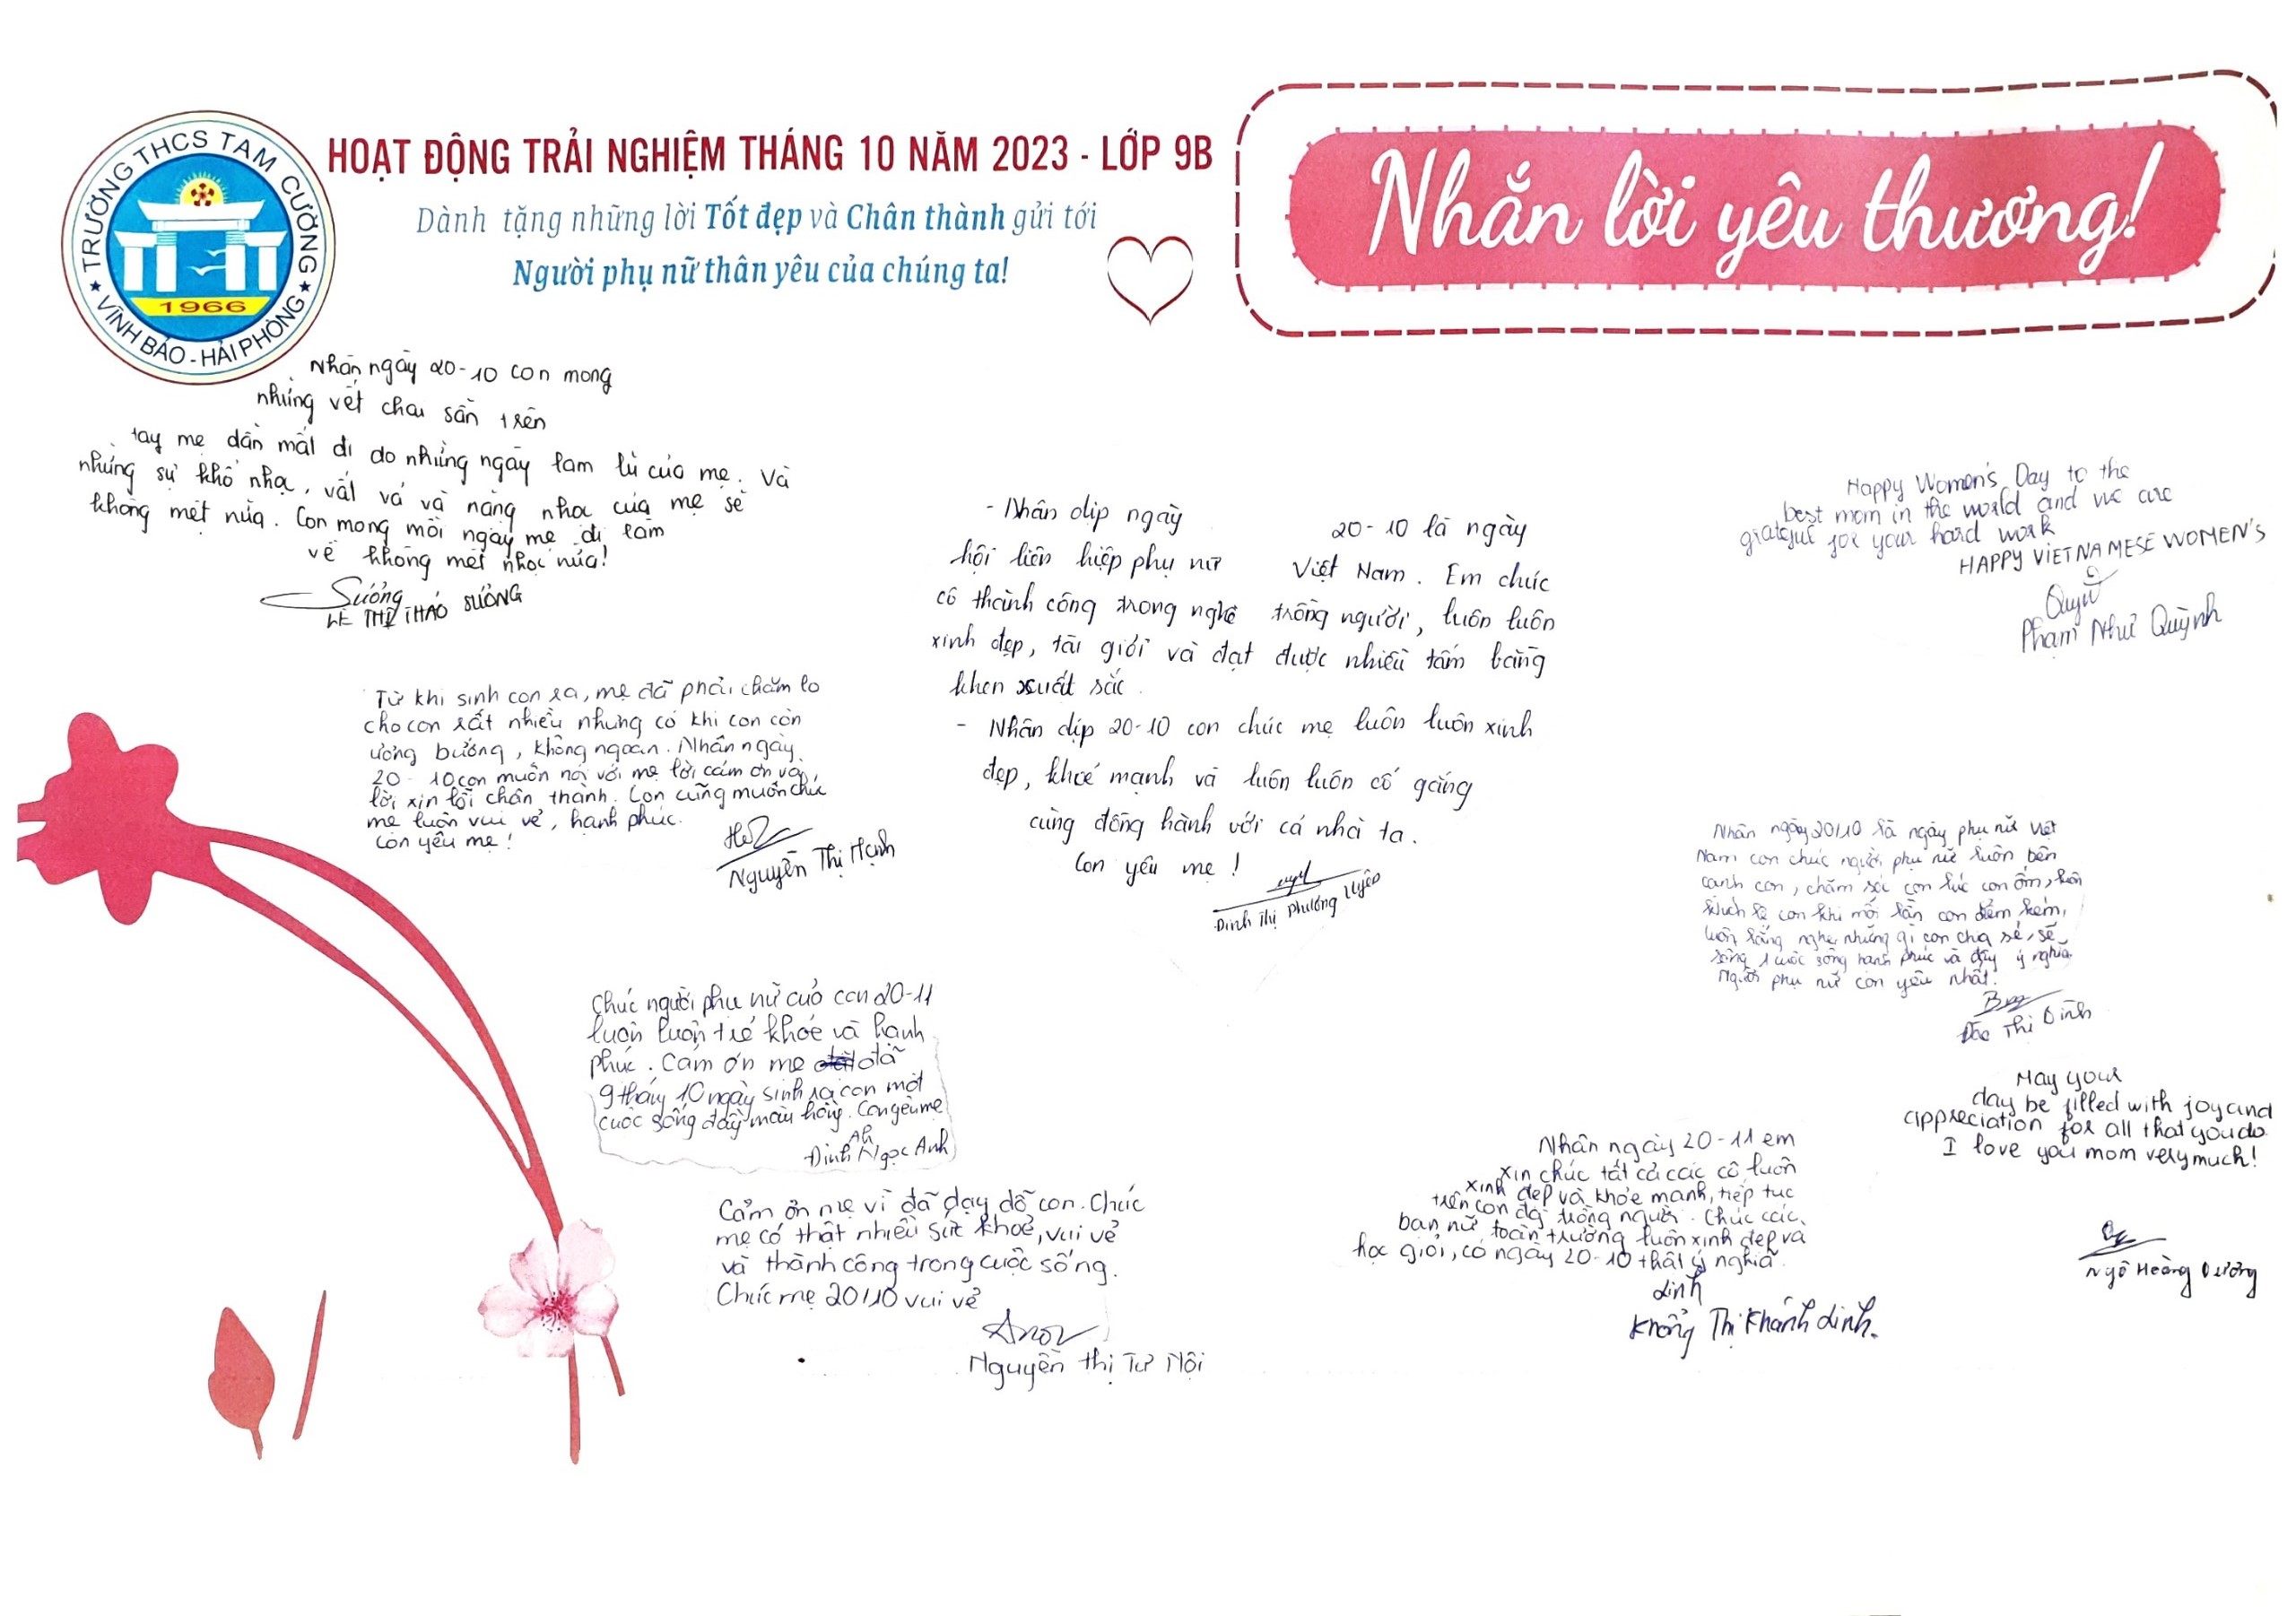 TRƯỜNG THCS TAM CƯỜNG
1966
★ VĨNH BẢO - HẢI PHÒNG ★
HOẠT ĐỘNG TRẢI NGHIỆM THÁNG 10 NĂM 2023 - LỚP 9B
Dành tặng những lời Tốt đẹp và Chân thành gửi tới
Người phụ nữ thân yêu của chúng ta!
Nhắn lời yêu thương!
Nhân ngày 20-10 con mong
những vết chai sần trên
tay mẹ dần mất đi do những ngày lam lũ của mẹ. Và
những sự khổ nhọc, vất vả và nặng nhọc của mẹ sẽ
không mệt nữa. Con mong mỗi ngày mẹ đi làm
về không mệt nhọc nữa!
Sương
LÊ THỊ THẢO SƯƠNG
Từ khi sinh con ra, mẹ đã phải chăm lo
cho con rất nhiều nhưng có khi con còn
ương bướng, không ngoan. Nhân ngày
20-10 con muốn nói với mẹ lời cảm ơn và
lời xin lỗi chân thành. Con cũng muốn chúc
mẹ luôn vui vẻ, hạnh phúc.
Con yêu mẹ!
Nguyễn Thị Hạnh
- Nhân dịp ngày 20-10 là ngày
hội liên hiệp phụ nữ Việt Nam. Em chúc
cô thành công trong nghề trồng người, luôn luôn
xinh đẹp, tài giỏi và đạt được nhiều tấm bằng
khen xuất sắc.
- Nhân dịp 20-10 con chúc mẹ luôn luôn xinh
đẹp, khoẻ mạnh và luôn luôn cố gắng
cùng đồng hành với cả nhà ta.
Con yêu mẹ!
Đinh Thị Phương Uyên
Happy Women's Day to the
best mom in the world and we are
grateful for your hard work
HAPPY VIETNAMESE WOMEN'S
Quỳnh
Phạm Như Quỳnh
Nhân ngày 20/10 là ngày phụ nữ Việt
Nam con chúc người phụ nữ luôn bên
cạnh con, chăm sóc con lúc con ốm, luôn
khích lệ con khi mỗi lần con điểm kém,
luôn lắng nghe những gì con chia sẻ, sẽ
sống 1 cuộc sống hạnh phúc và đầy ý nghĩa.
Người phụ nữ con yêu nhất.
Đào Thị Dinh
Chúc người phụ nữ của con 20-11
luôn luôn trẻ khỏe và hạnh
phúc. Cảm ơn mẹ đã
9 tháng 10 ngày sinh ra con một
cuộc sống đầy màu hồng. Con yêu mẹ
Ah
Đinh Ngọc Anh
Cảm ơn mẹ vì đã dạy dỗ con. Chúc
mẹ có thật nhiều sức khoẻ, vui vẻ
và thành công trong cuộc sống.
Chúc mẹ 20/10 vui vẻ
Nguyễn Thị Tư Nội
Nhân ngày 20-11 em
xin chúc tất cả các cô luôn
xinh đẹp và khỏe mạnh, tiếp tục
trên con đg trồng người. Chúc các
bạn nữ toàn trường luôn xinh đẹp và
học giỏi, có ngày 20-10 thật ý nghĩa.
Linh
Khổng Thị Khánh Linh.
May your
day be filled with joy and
appreciation for all that you do
I love you mom very much!
Ngô Hoàng Dương